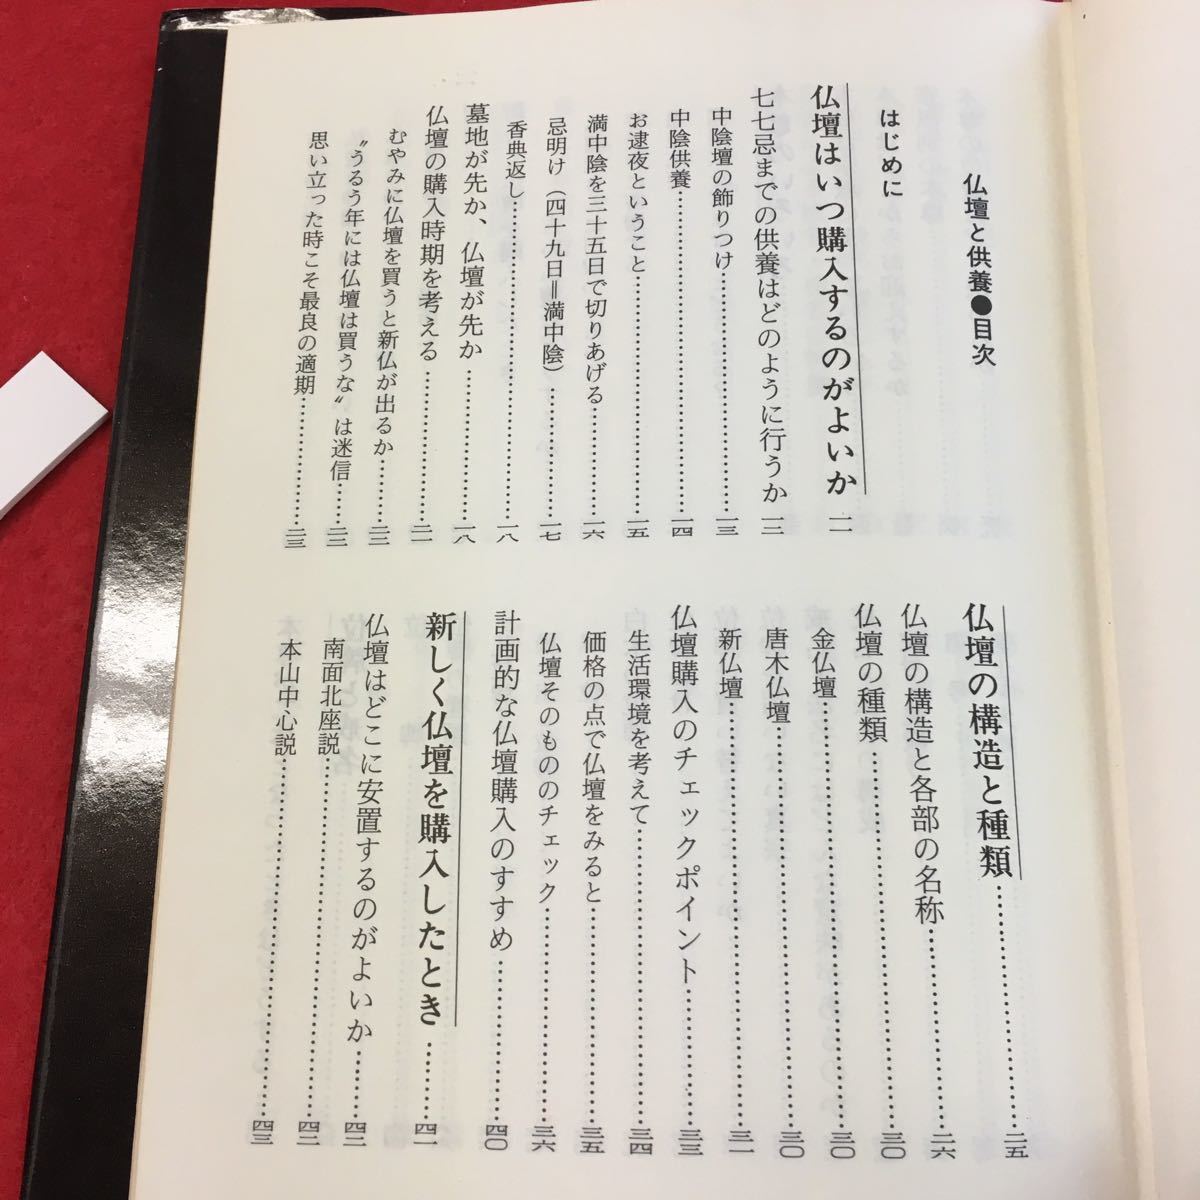 仏壇と供養●目次
はじめに
仏壇はいつ購入するのがよいか 一一
七七忌までの供養はどのように行うか 一二
中陰壇の飾りつけ……一三
中陰供養……一四
お逮夜ということ……一五
満中陰を三十五日で切りあげる……一六
忌明け（四十九日＝満中陰）……一七
香典返し……一八
墓地が先か、仏壇が先か……一八
仏壇の購入時期を考える……二一
むやみに仏壇を買うと新仏が出るか……二二
〝うるう年には仏壇は買うな〟は迷信……二二
思い立った時こそ最良の適期……二三
仏壇の構造と種類……二五
仏壇の構造と各部の名称……二六
仏壇の種類……三〇
金仏壇……三〇
唐木仏壇……三〇
新仏壇……三一
仏壇購入のチェックポイント……三三
生活環境を考えて……三四
価格の点で仏壇をみると……三五
仏壇そのもののチェック……三六
計画的な仏壇購入のすすめ……四〇
新しく仏壇を購入したとき……四一
仏壇はどこに安置するのがよいか……四二
南面北座説……四二
本山中心説……四三